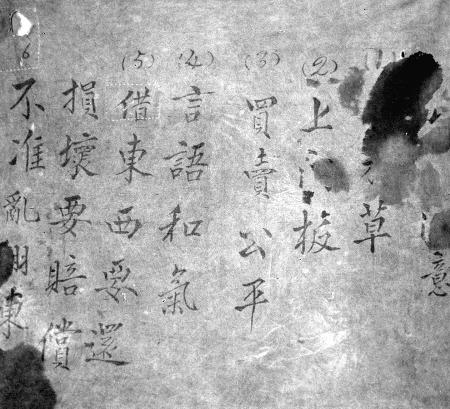 意
草
(2) 上板
(3) 買賣公平
(4) 言語和氣
(5) 借東西要還
損壞要賠償
6 不准亂用東